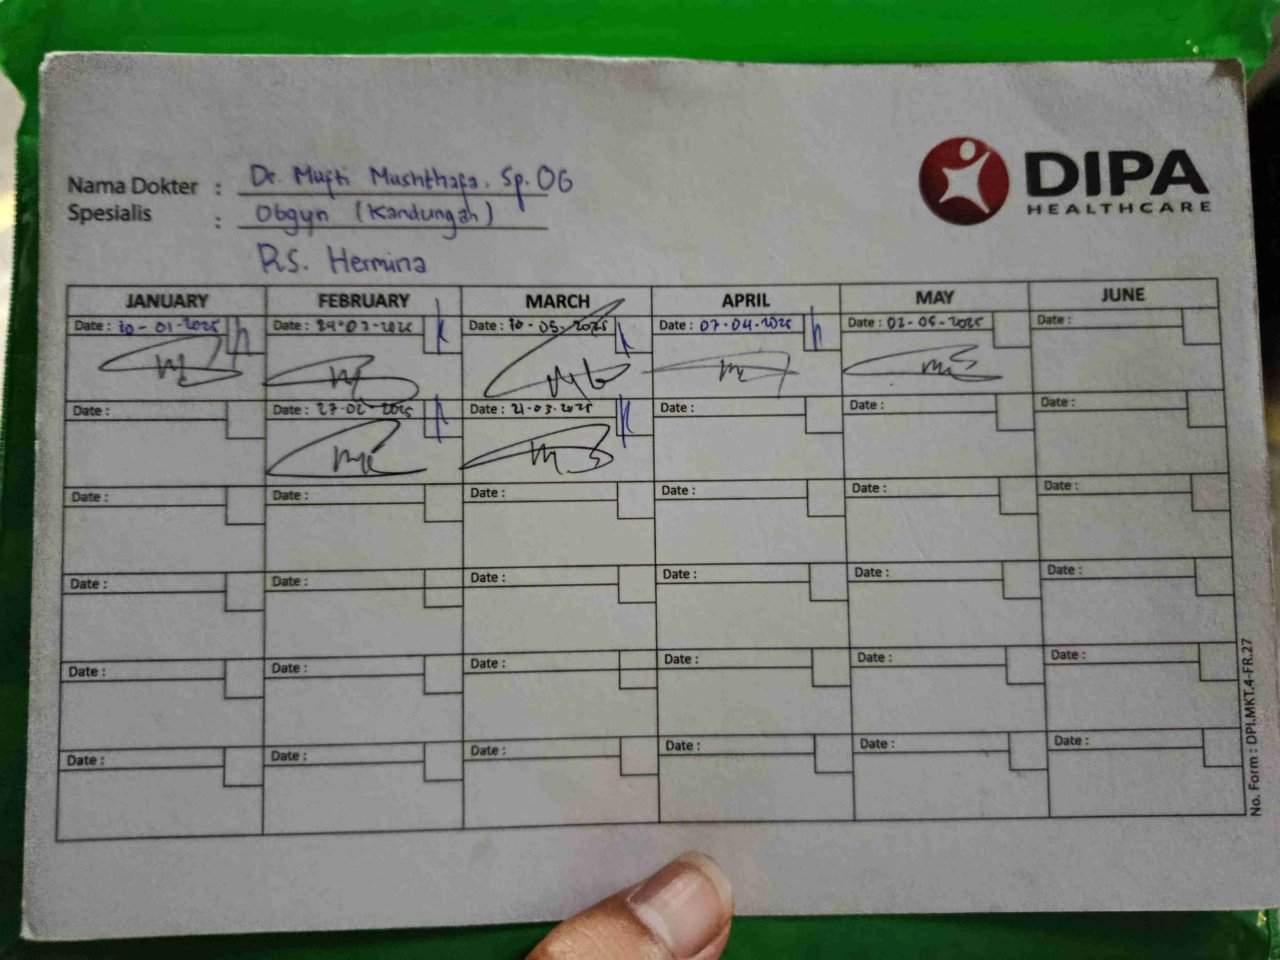 DIPA
HEALTHCARE
Nama Dokter : Dr. Mufti Mushthafa. Sp.OG
Spesialis : Obgyn (Kandungan)
R.S. Hermina
JANUARY FEBRUARY MARCH APRIL MAY JUNE
Date : 10-01-2025 Date : Date : 10-05-2025 Date : 07-04-2025 Date : 02-05-2025 Date :
Date : Date : 27-02-2025 Date : 21-03-2025 Date : Date : Date :
Date : Date : Date : Date : Date : Date :
Date : Date : Date : Date : Date : Date :
Date : Date : Date : Date : Date : Date :
Date : Date : Date : Date : Date : Date :
No. Form : DPI.MKT.4-FR.27